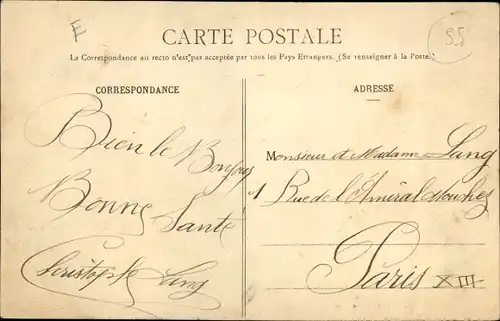 E
55
CARTE POSTALE
La Correspondance au recto n'est pas acceptée par tous les Pays Etrangers. (Se renseigner à la Poste.)
CORRESPONDANCE
Bien le Bonjour
Bonne Santé
Christophe Lang
ADRESSE
Monsieur et Madame Lang
1 Rue de l'Amiral
Paris XIII